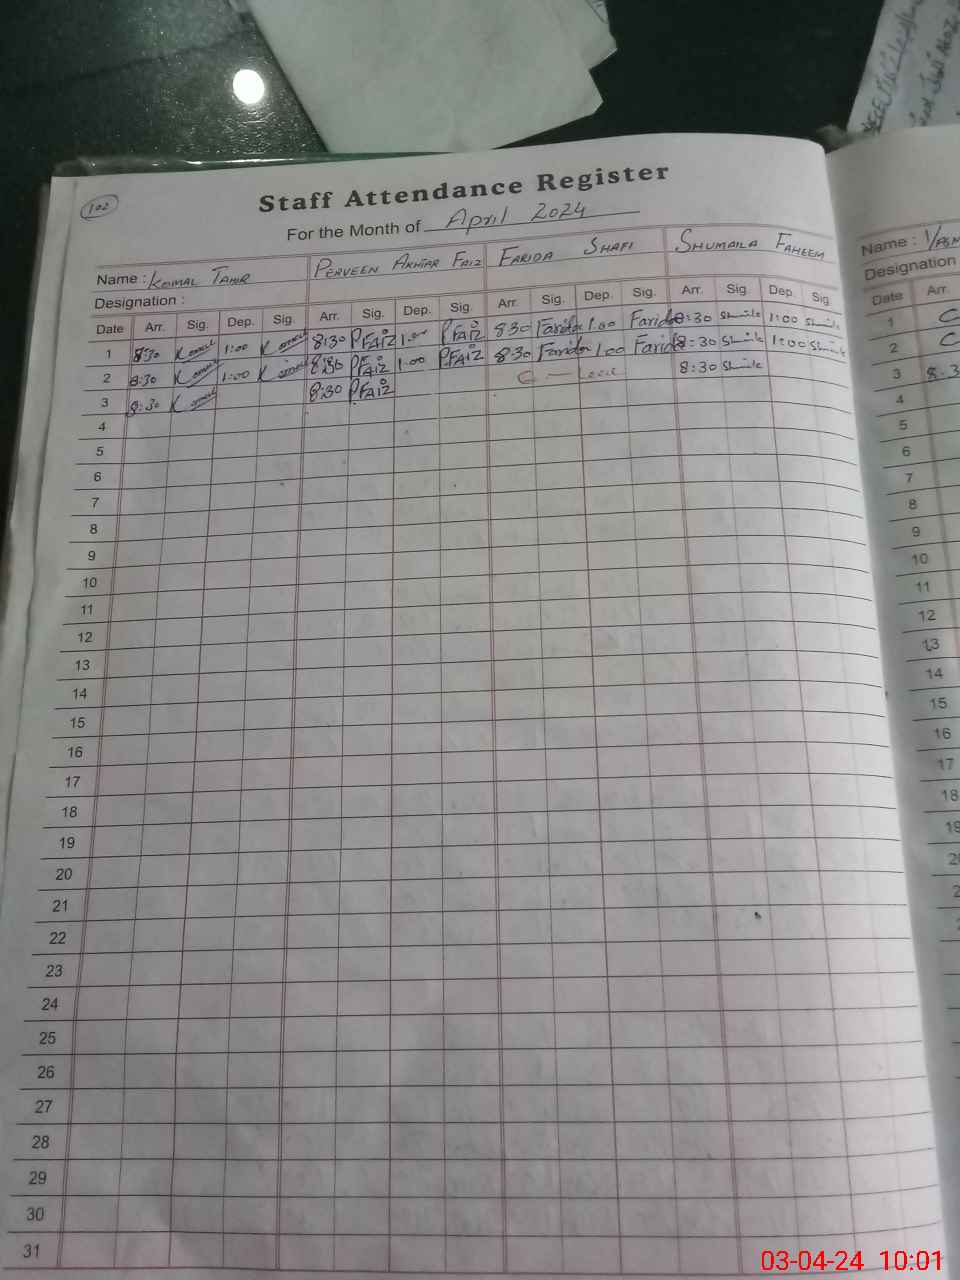 102
Staff Attendance Register
For the Month of April 2024
Name : Komal Tahir PERVEEN AKHTAR FAIZ FARIDA SHAFI SHUMAILA FAHEEM
Designation :
Date Arr. Sig. Dep. Sig. Arr. Sig. Dep. Sig. Arr. Sig. Dep. Sig. Arr. Sig. Dep. Sig
1 8:30 Komal 1:00 Komal 8:30 PFAIZ 1.00 PFAIZ 8:30 Farida 1.00 Farida 8:30 1:00
2 8:30 Komal 1:00 Komal 8:30 PFAIZ 1.00 PFAIZ 8:30 Farida 1.00 Farida 8:30 1:00
3 8:30 Komal 8:30 PFAIZ C — Leave 8:30
4
5
6
7
8
9
10
11
12
13
14
15
16
17
18
19
20
21
22
23
24
25
26
27
28
29
30
31
Name :
Designation
Date Arr.
1 C
2 C
3 8:3
4
5
6
7
8
9
10
11
12
13
14
15
16
17
18
19
03-04-24 10:01